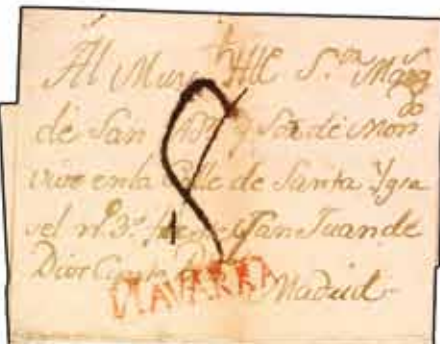 Al Muy Ille S.or Marq.s
de San y Sor de Mon
vive en la Calle de Santa Ysa
vel n.º 3.º San Juan de
Dios
NAVARRA Madrid